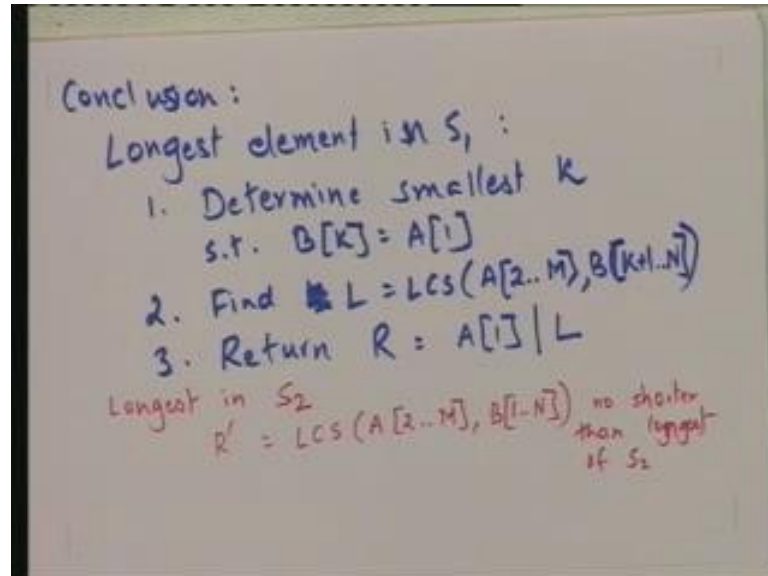 Conclusion:
Longest element in S₁ :
1. Determine smallest K
s.t. B[K] = A[1]
2. Find L = LCS(A[2..M), B[K+1..N])
3. Return R = A[1] | L
Longest in S₂
R' = LCS(A[2..M], B[1..N]) no shorter
than longest
of S₂